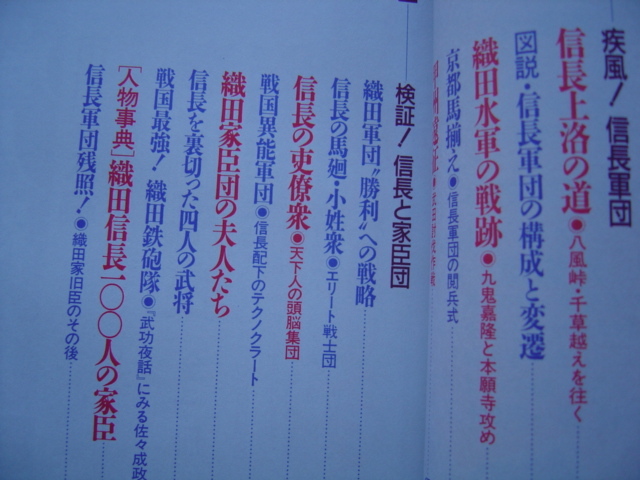 疾風！ 信長軍団
信長上洛の道●八風峠・千草越えを往く
図説・信長軍団の構成と変遷
織田水軍の戦跡●九鬼嘉隆と本願寺攻め
京都馬揃え●信長軍団の閲兵式
検証！ 信長と家臣団
織田軍団“勝利”への戦略
信長の馬廻・小姓衆●エリート戦士団
信長の吏僚衆●天下人の頭脳集団
戦国異能軍団●信長配下のテクノクラート
織田家臣団の夫人たち
信長を裏切った四人の武将
戦国最強！ 織田鉄砲隊●『武功夜話』にみる佐々成政
［人物事典］織田信長一〇〇人の家臣
信長軍団残照！●織田家旧臣のその後